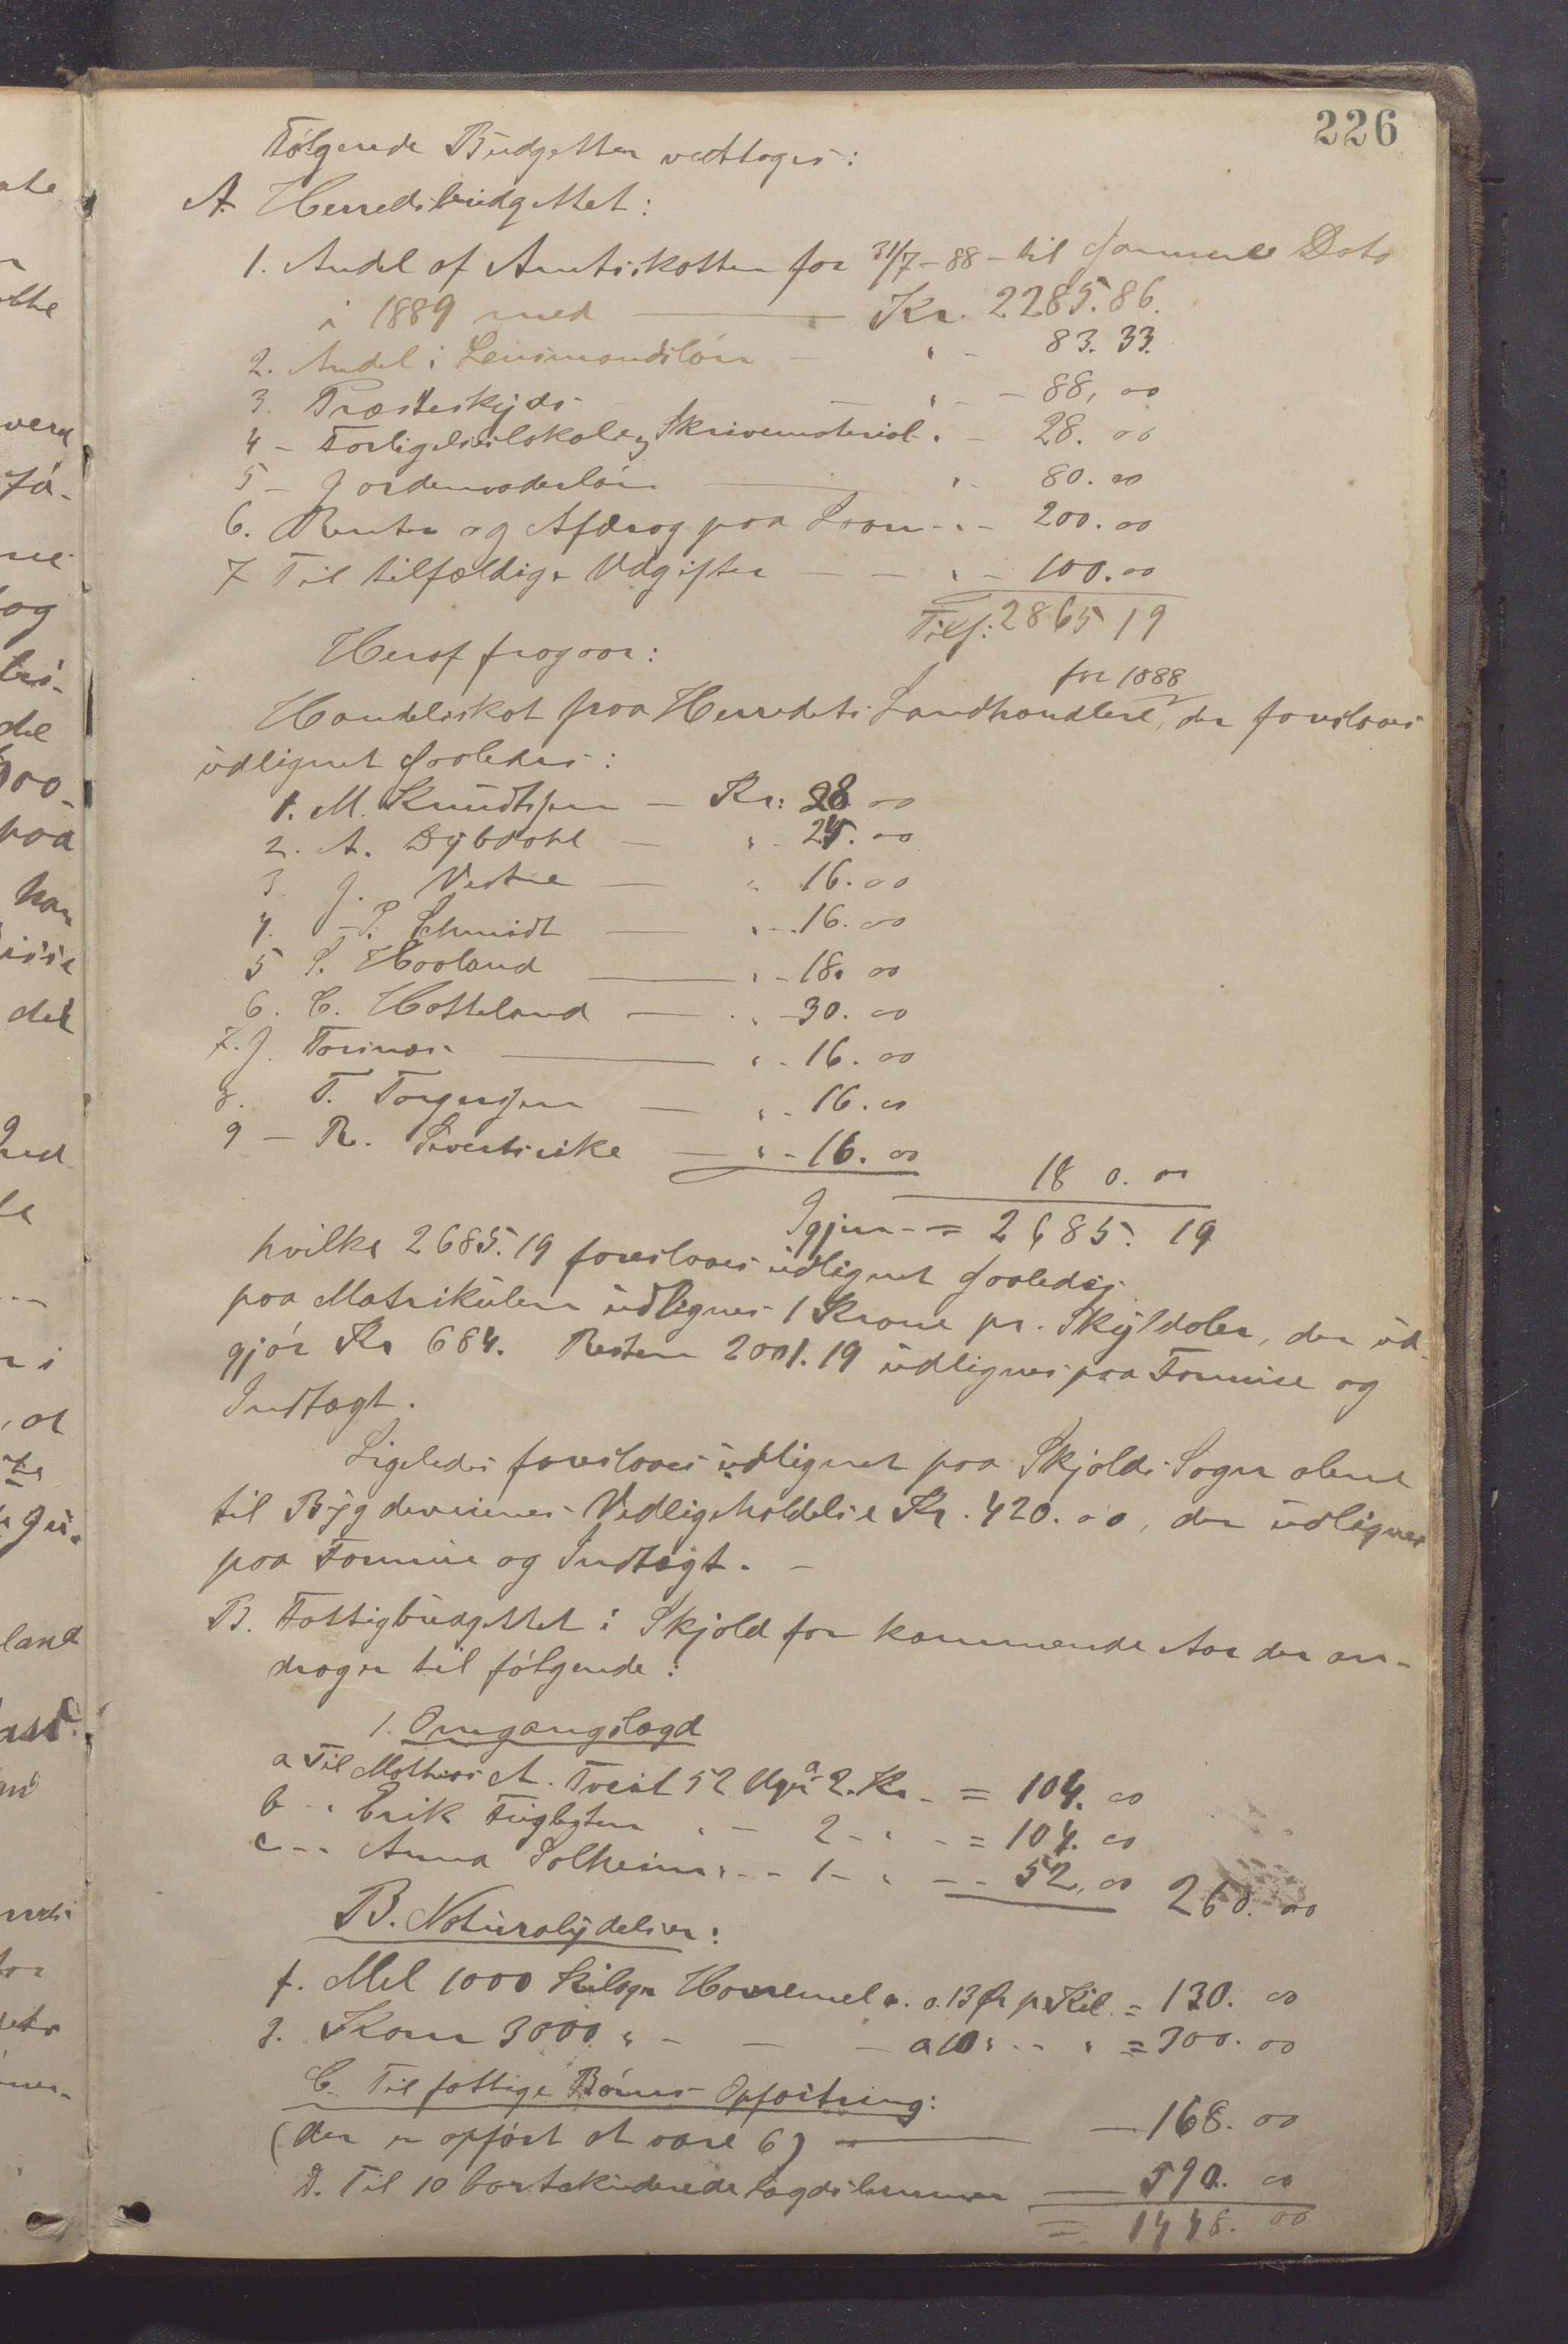 226
Følgende Budgetter vedtoges:
A. Herredsbudgettet:
1. Andel af Amtsskatten for 31/7-88 - til samme Dato
i 1889 med — Kr. 2285.86.
2. Andel i Lensmandsløn — " - 83.33.
3. Præsteskyds — " - - 88,00
4 - Forligelseslokale og Skrivemateriel " - 28.00
5 - Jordemoderløn — " - 80.00
6. Renter og Afdrag paa Laan - " - 200.00
7 Til tilfældige Udgifter — — " - 100.00
Tils: 2865 19
Heraf fragaar:
for 1888
Handelsskat fra Herredets Landhandlere, der foreslaaes
udlignet saaledes:
1. M. Knudtsen — Kr: 28.00
2. A. Dybdahl — " - 24.00
3. J. Vestre — " 16.00
4. - P. Schmidt — " - 16.00
5 S. Haaland — " - 18.00
6. C. Hatteland — " - 30.00
7. J. Torsnæs — " - 16.00
8. T. Torgersen — " - 16.00
9 - R. Sivertsvike — " - 16.00 180.00
Igjen - = 2685.19
hvilke 2685.19 foreslaaes udlignet saaledes;
paa Matrikulen udlignes 1 Krone pr. Skylddaler, der ud-
gjør Kr 684. Resten 2001.19 udlignes paa Formue og
Indtægt.
Ligeledes foreslaaes udlignet paa Skjolds Sogn alene
til Bygdeveienes Vedligeholdelse Kr. 420.00, der udlignes
paa Formue og Indtægt. -
B. Fattigbudgettet i Skjold for kommende Aar der an-
drager til følgende:
1. Omgangslægd
a Til Mathias A. Tveit 52 Uger a 2 Kr. = 104.00
b - " Erik " - 2 - " - = 104.00
c - - Anna Solheim " - - 1 - " - - 52,00 260.00
B. Naturalydelser:
f. Mel 1000 Kilogr Havremel a. 13 Ør pr. Kil. = 130.00
g. Korn 3000 " - — - a 10 " - - " = 300.00
C. Til fattige Børns Opfostring:
(der er opført at være 6) — 168.00
D. Til 10 bortakorderede Lægdslemmer — 590.00
= 1448.00